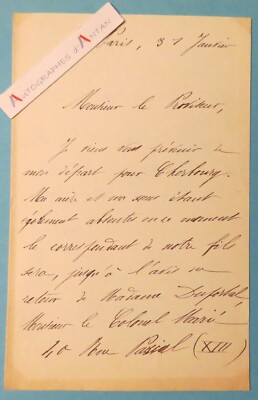 AUTOGRAPHES d'ANTAN
Paris, 31 Janvier
Monsieur le Proviseur,
Je viens vous prévenir de
mon départ pour Cherbourg.
Ma mère et ma sœur étant
également absentes en ce moment
le correspondant de notre fils
sera, jusqu'à l'avis du
retour de Madame
Monsieur le Colonel
40 Rue Pascal (XIII)